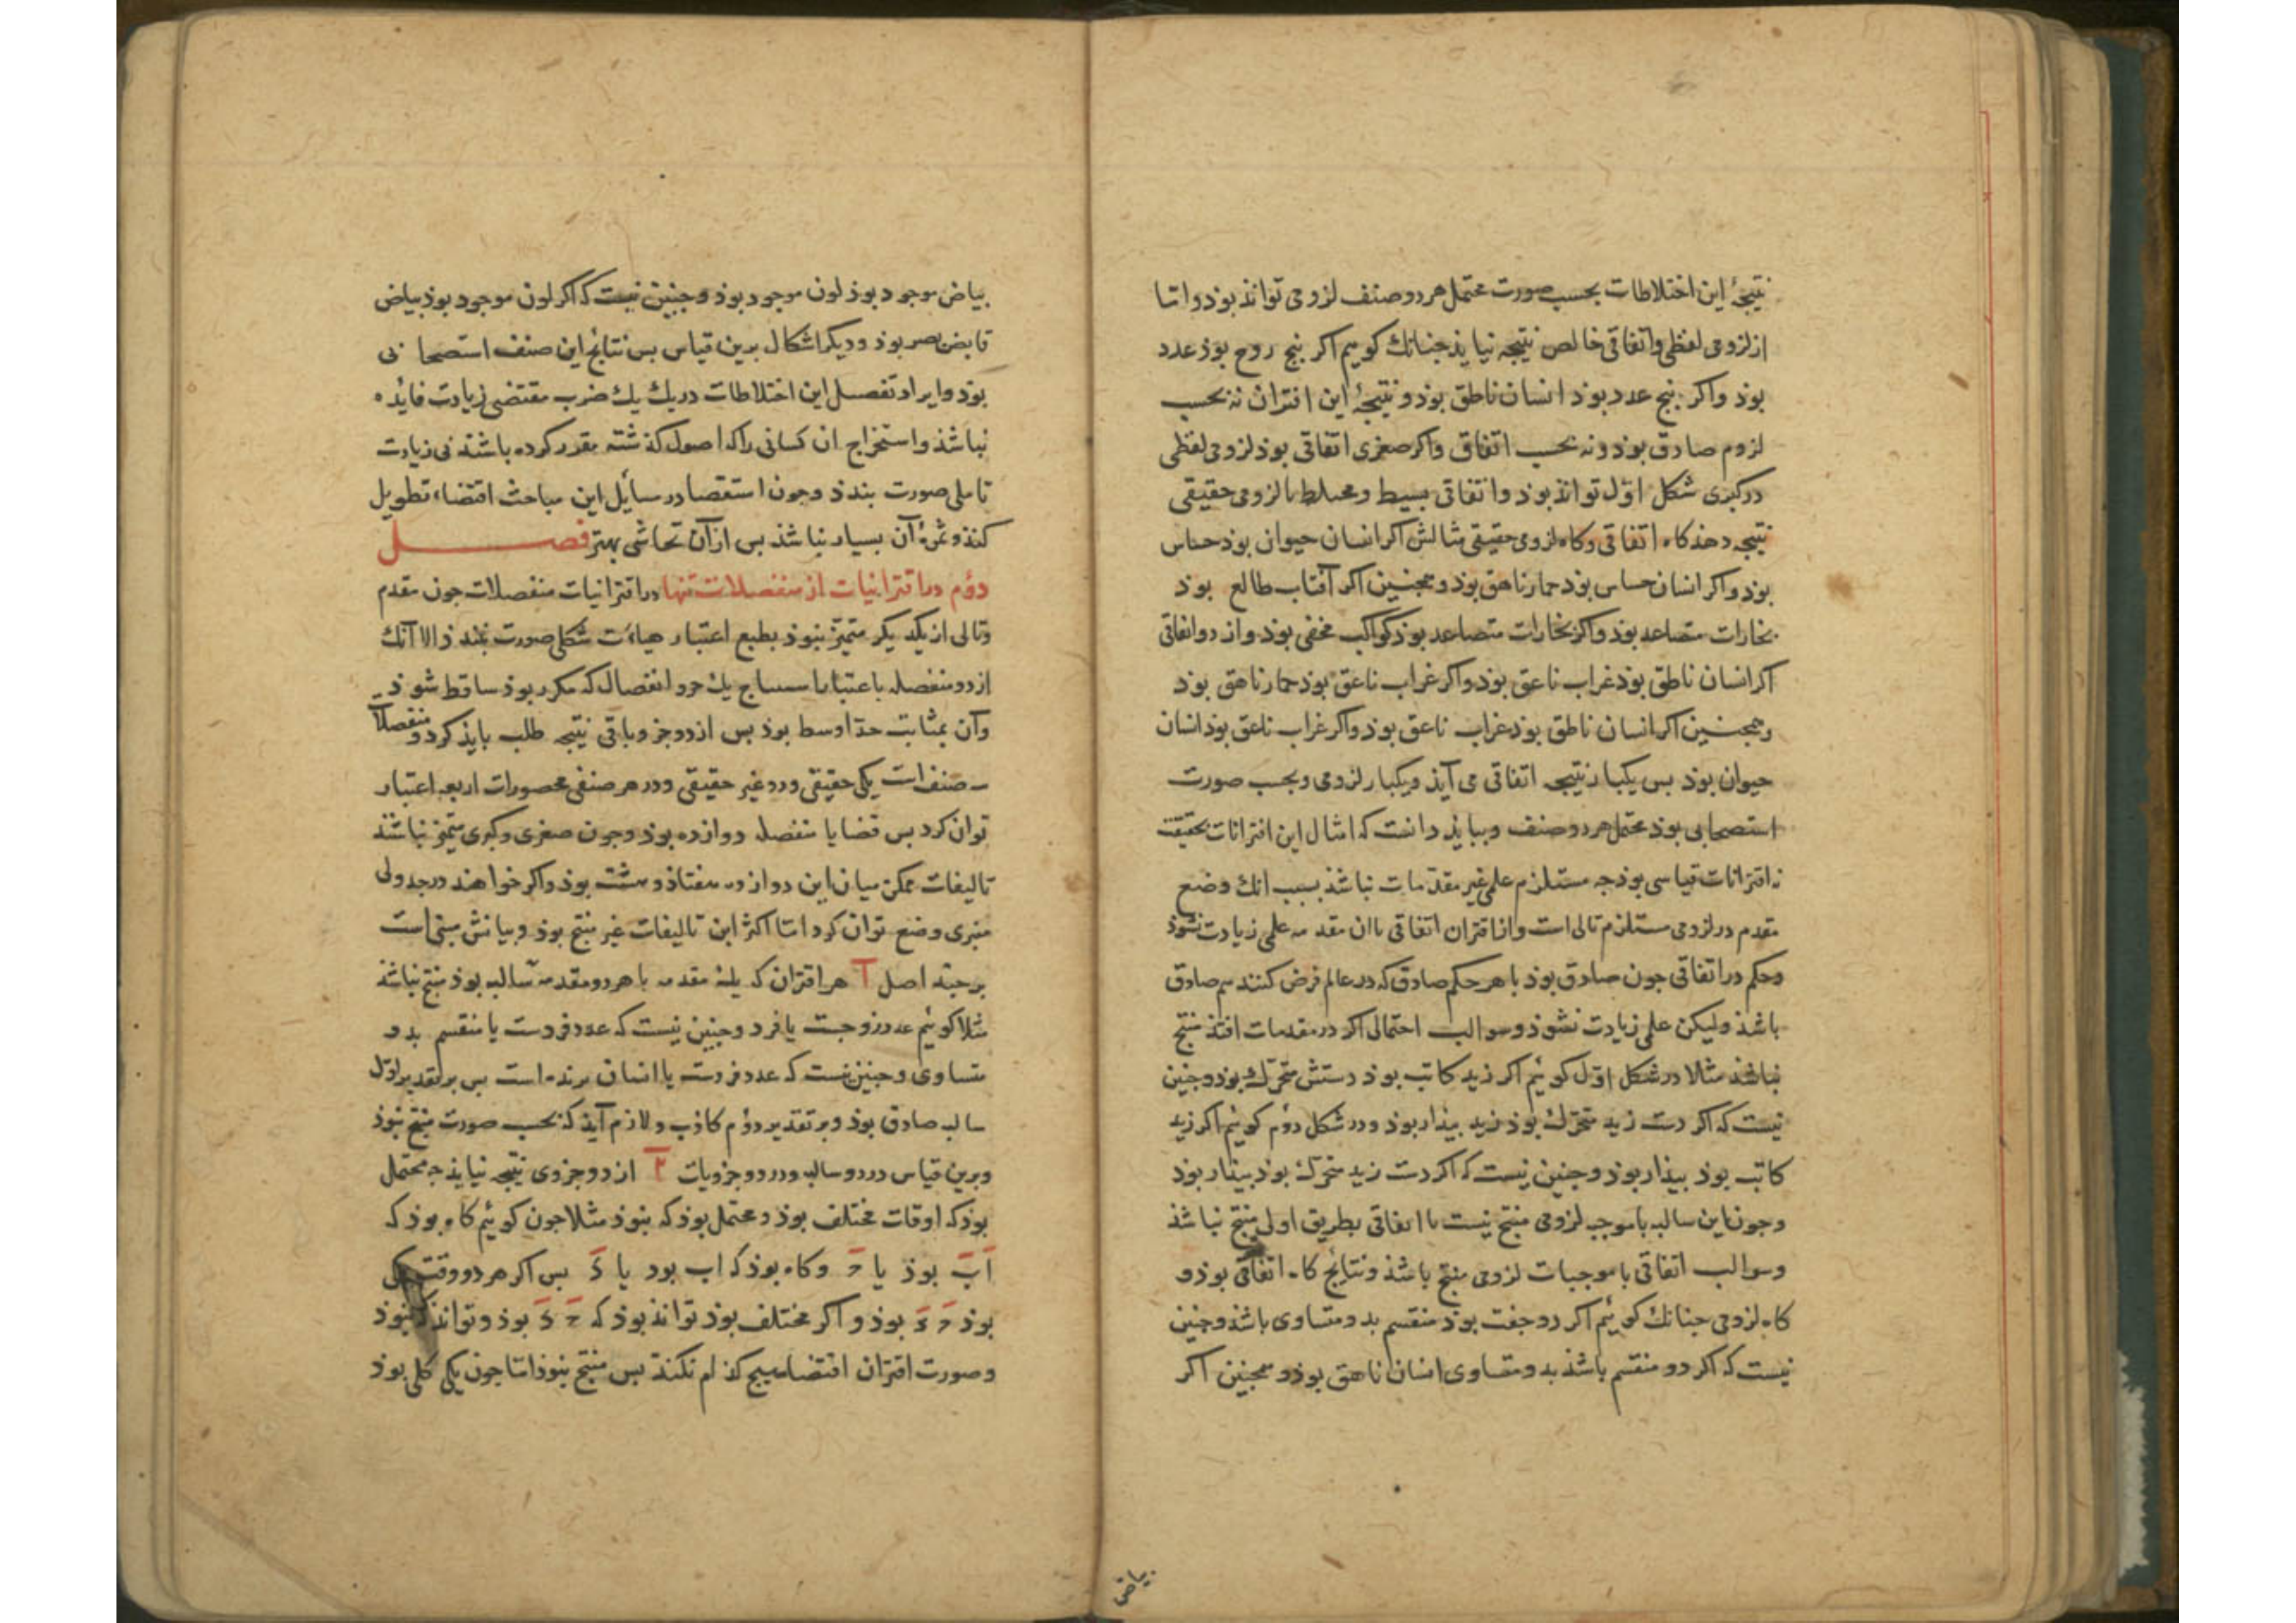 نتیجهٔ این اختلاطات بحسب صورت محتمل هر دو صنف لزومی تواند بوذ و اتما
از لزومی لفظی و اتفاقی خالص نتیجه نیاید جنانك کوییم اکر بنج زوج بوذ عدد
بوذ و اکر بنج عدد بوذ انسان ناطق بوذ و نتیجهٔ این اقتران نه بحسب
لزوم صادق بوذ و نه بحسب اتفاق و اکر صغری اتفاقی بوذ لزومی لفظی
در کبری شکل اوّل تواند بوذ و اتفاقی بسیط و مختلط با لزومی حقیقی
نتیجه دهذ کاه اتفاقی و کاه لزومی حقیقی مثالش اکر انسان حیوان بوذ حساس
بوذ و اکر انسان حساس بوذ حمار ناهق بوذ و همجنین اکر آفتاب طالع بوذ
بخارات متصاعد بوذ و اکر بخارات متصاعد بوذ کواکب مخفی بوذ و از دو اتفاقی
اکر انسان ناطق بوذ غراب ناعق بوذ و اکر غراب ناعق بوذ حمار ناهق بوذ
و همجنین اکر انسان ناطق بوذ غراب ناعق بوذ و اکر غراب ناعق بوذ انسان
حیوان بوذ بس یکبار نتیجه اتفاقی می آیذ و یکبار لزومی و بحسب صورت
استصحابی بوذ محتمل هر دو صنف و ببایذ دانست که امثال این اقترانات بحقیقت
نه اقترانات قیاسی بوذ جه مستلزم علمی غیر مقدمات نباشذ بسبب انك وضع
مقدم در لزومی مستلزم تالی است و از اقتران اتفاقی باان مقدمه علمی زیادت نشوذ
و حکم در اتفاقی جون صادق بوذ با هر حکم صادق که در عالم فرض کنند هم صادق
باشذ ولیکن علمی زیادت نشوذ و سوالب احتمالی اکر در مقدمات افتذ منتج
نباشد مثلا در شکل اوّل کوئیم اکر زید کاتب بوذ دستش متحرّك بوذ و جنین
نیست که اکر دست زید متحرك بوذ زید بیذار بوذ و در شکل دوّم کوئیم اکر زید
کاتب بوذ بیذار بوذ و جنین نیست که اکر دست زید متحرك بوذ بیذار بوذ
و جون این سالبه با موجبه لزومی منتج نیست با اتفاقی بطریق اولی منتج نباشذ
و سوالب اتفاقی با موجبات لزومی منتج باشذ و نتایج کاه اتفاقی بوذ و
کاه لزومی جنانك کوییم اکر دو جفت بوذ منقسم بدو متساوی باشذ و جنین
نیست که اکر دو منقسم باشذ بدو متساوی انسان ناهق بوذ و همجنین اکر
بیاض
بیاض موجود بوذ لون موجود بوذ و جنین نیست که اکر لون موجود بوذ بیاض
قابض بصر بوذ و دیکر اشکال برین قیاس بس نتایج این صنف استصحابی
بوذ و ایراد تفصیل این اختلاطات در یك یك ضرب مقتضی زیادت فائده
نباشذ و استخراج ان کسانی را که اصول کذشته مقدر کرده باشند بی زیادت
تاملی صورت بندذ و جون استقصا در مسایل این مباحث اقتضاء تطویل
کنذ و ثمرهٔ آن بسیار نباشذ بس از آن تحاشی بهتر فصل
دوّم در اقترانیات از منفصلات تنها در اقترانیات منفصلات جون مقدم
و تالی از یکدیکر متمیّز نبوذ بطبع اعتبار هیاءت شکلی صورت نبندذ الا آنك
از دو منفصله باعتبار یك جزو انفصال که مکرر بوذ ساقط شوذ
و آن بمثابت حد اوسط بوذ بس از دو جزو باقی نتیجه طلب بایذ کرد و منفصلات
صنف است یکی حقیقی و دو غیر حقیقی و در هر صنفی محصورات اربعه اعتبار
توان کرد بس قضایا منفصله دوازده بوذ و جون صغری و کبری متمیّز نباشند
تالیفات ممکن میان این دوازده هفتاذ و هشت بوذ و اکر خواهند در جدولی
منبری وضع توان کرد اتما اکثر این تالیفات غیر منتج بوذ و بیانش مبنی است
بر جند اصل آ هر اقتران که یك مقدمه یا هر دو مقدمه سالبه بوذ منتج نباشذ
مثلا کوئیم عدد زوجست یا فرد و جنین نیست که عدد فردست یا منقسم بدو
متساوی و جنین نیست که عدد فردست یا انسان برنده است بس بر تقدیر اوّل
سالبه صادق بوذ و بر تقدیر دوّم کاذب و لازم آیذ که بحسب صورت منتج نبوذ
و برین قیاس در دو سالبه و در دو جزویات ٢ از دو جزوی نتیجه نیایذ جه محتمل
بوذ که اوقات مختلف بوذ و محتمل بوذ که نبوذ مثلا جون کوئیم کاه بوذ که
اب بوذ یا ح و کاه بوذ که اب بود یا ء بس اکر هر دو وقت یکی
بوذ ح ء بوذ و اکر مختلف بوذ تواند بوذ که ح ء بوذ و تواند که نبوذ
و صورت اقتران اقتضاء هیج کذام نکند بس منتج نبوذ اتما جون یکی کلی بوذ